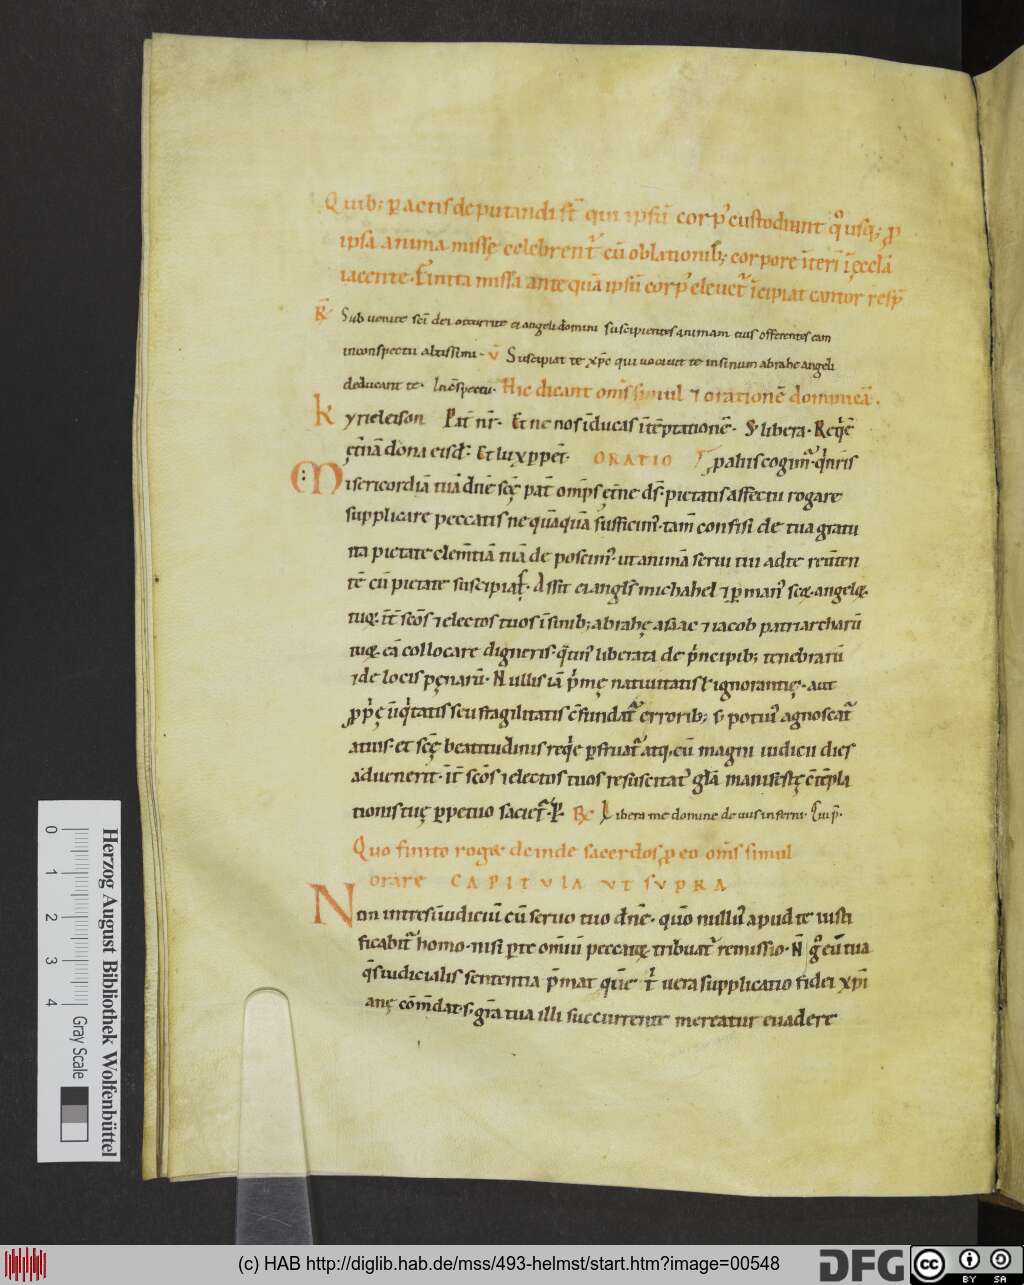 Quib; pactis deputandi st̄ qui ipsū corp' custodiunt qͦusq; ꝓ
ipsa anima missę celebrent᷑ cū oblationib; corpore īteri ī ęccl̄a
iacente. Finita missa ante quā ipsū corp' eleuet᷑ īcipiat cantor resp̄
R̄ Sub uenite sc̄i dei occurrite ei angeli domini suscipientes animam eius offerentes eam
in conspectu altissimi. V̄ Suscipiat te xp̄c qui uocauit te in sinum abrahe angeli
deducant te. In c̄spectu. Hic dicant om̄s simul ⁊ orationē dominicā.
Kyrieleison Pat̄ nr̄. Et ne nos īducas ī tēptationē. S; libera. Req̄ē
ęt̄nā dona eis d. Et lux ꝑpet̄. ORATIO
Misericordiā tuā dn̄e sc̄ę pat̄ om̄ps ęt̄ne ds̄. pietatis affectu rogare
supplicare peccatis ne quāquā sufficim'. tam̄ confisi de tua gratu
ita pietate clem̄tiā tuā de poscim'. ut animā serui tui ad te reūten
tē cū pietate suscipias. Assit ei angl̄s michahel ⁊ ꝑ man' scꝝ. angelꝝ.
tuꝝ. īt̄ sc̄os ⁊ electos tuos ī sinib; abrahę asiac ⁊ iacob patriarcharū
tuꝝ. eā collocare digneris. qͣtin' liberata de pͥncipib; tenebrarū
⁊ de locis pęnarū. Nullis iā pͥmę natiuitatis ł ignorantię. aut
ꝓpͥę īiqͥtatis seu fragilitatis c̄fundat᷑ errorib; s; poti' agnoscat᷑
a tuis. et sc̄ę beatitudinis req̄e ꝑfruat᷑ atq; cū magni iudicii dies
aduenerit. īt̄ sc̄os ⁊ electos tuos resuscitat' gl̄ā manifestę c̄tēpla
tionis tuę ꝑpetuo sacief. P. R̄ Libera me domine de uiis inferni.
Quo finito rogꝝ deinde sacerdos ꝓ eo om̄s simul
orare CAPITULA UT SUPRA
Non intres ī iudiciū cū seruo tuo dn̄e. qūo null' apud te iusti
ficabit᷑ homo. nisi ꝑ te om̄iū peccatoꝝ tribuat᷑ remissio. N̄ gͦ eū tua
q̄s iudicialis sententia p̄mat quē tͥ uera supplicatio fidei xp̄i
anę com̄dat. s; gr̄a tua illi succurrente mereatur euadere
Herzog August Bibliothek Wolfenbüttel
0 1 2 3 4
Gray Scale
(c) HAB http://diglib.hab.de/mss/493-helmst/start.htm?image=00548
DFG
cc
BY SA